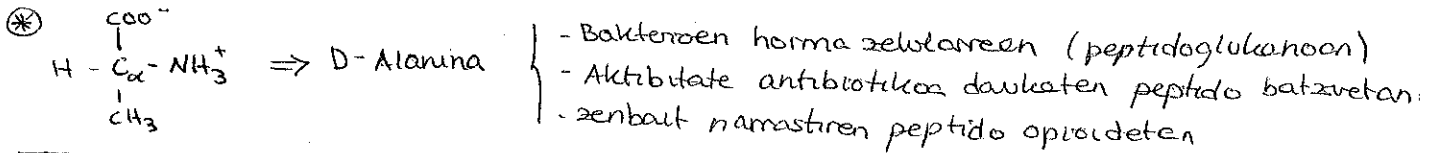 ⊛ COO⁻
H - Cα - NH₃⁺ ⇒ D-Alanina
CH₃
- Bakterioen horma zelularrean (peptidoglukanoan)
- Aktibitate antibiotikoa daukaten peptido batzuetan.
- zenbait narrastiren peptido opioideten